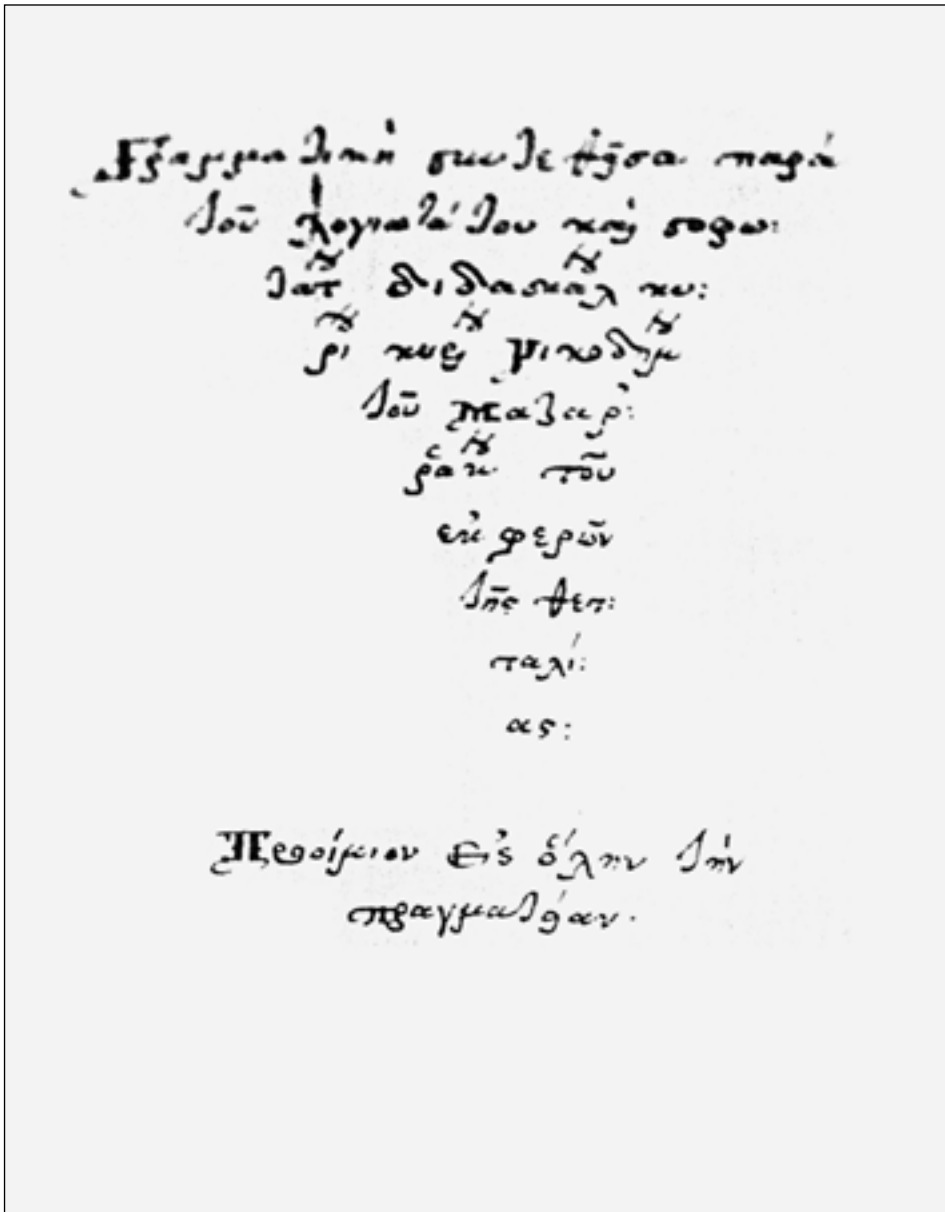 Γραμματικὴ συντεθῆσα παρὰ
τοῦ λογιωτάτου καὶ σοφω:
τάτου διδασκάλου κυ:
ρίου κυρίου Νικοδήμου
τοῦ Μαζαρ:
ράκου τοῦ
ἐκ φερῶν
τῆς θετ:
ταλί:
ας:
Προοίμιον Εἰς ὅλην τὴν
πραγματείαν.